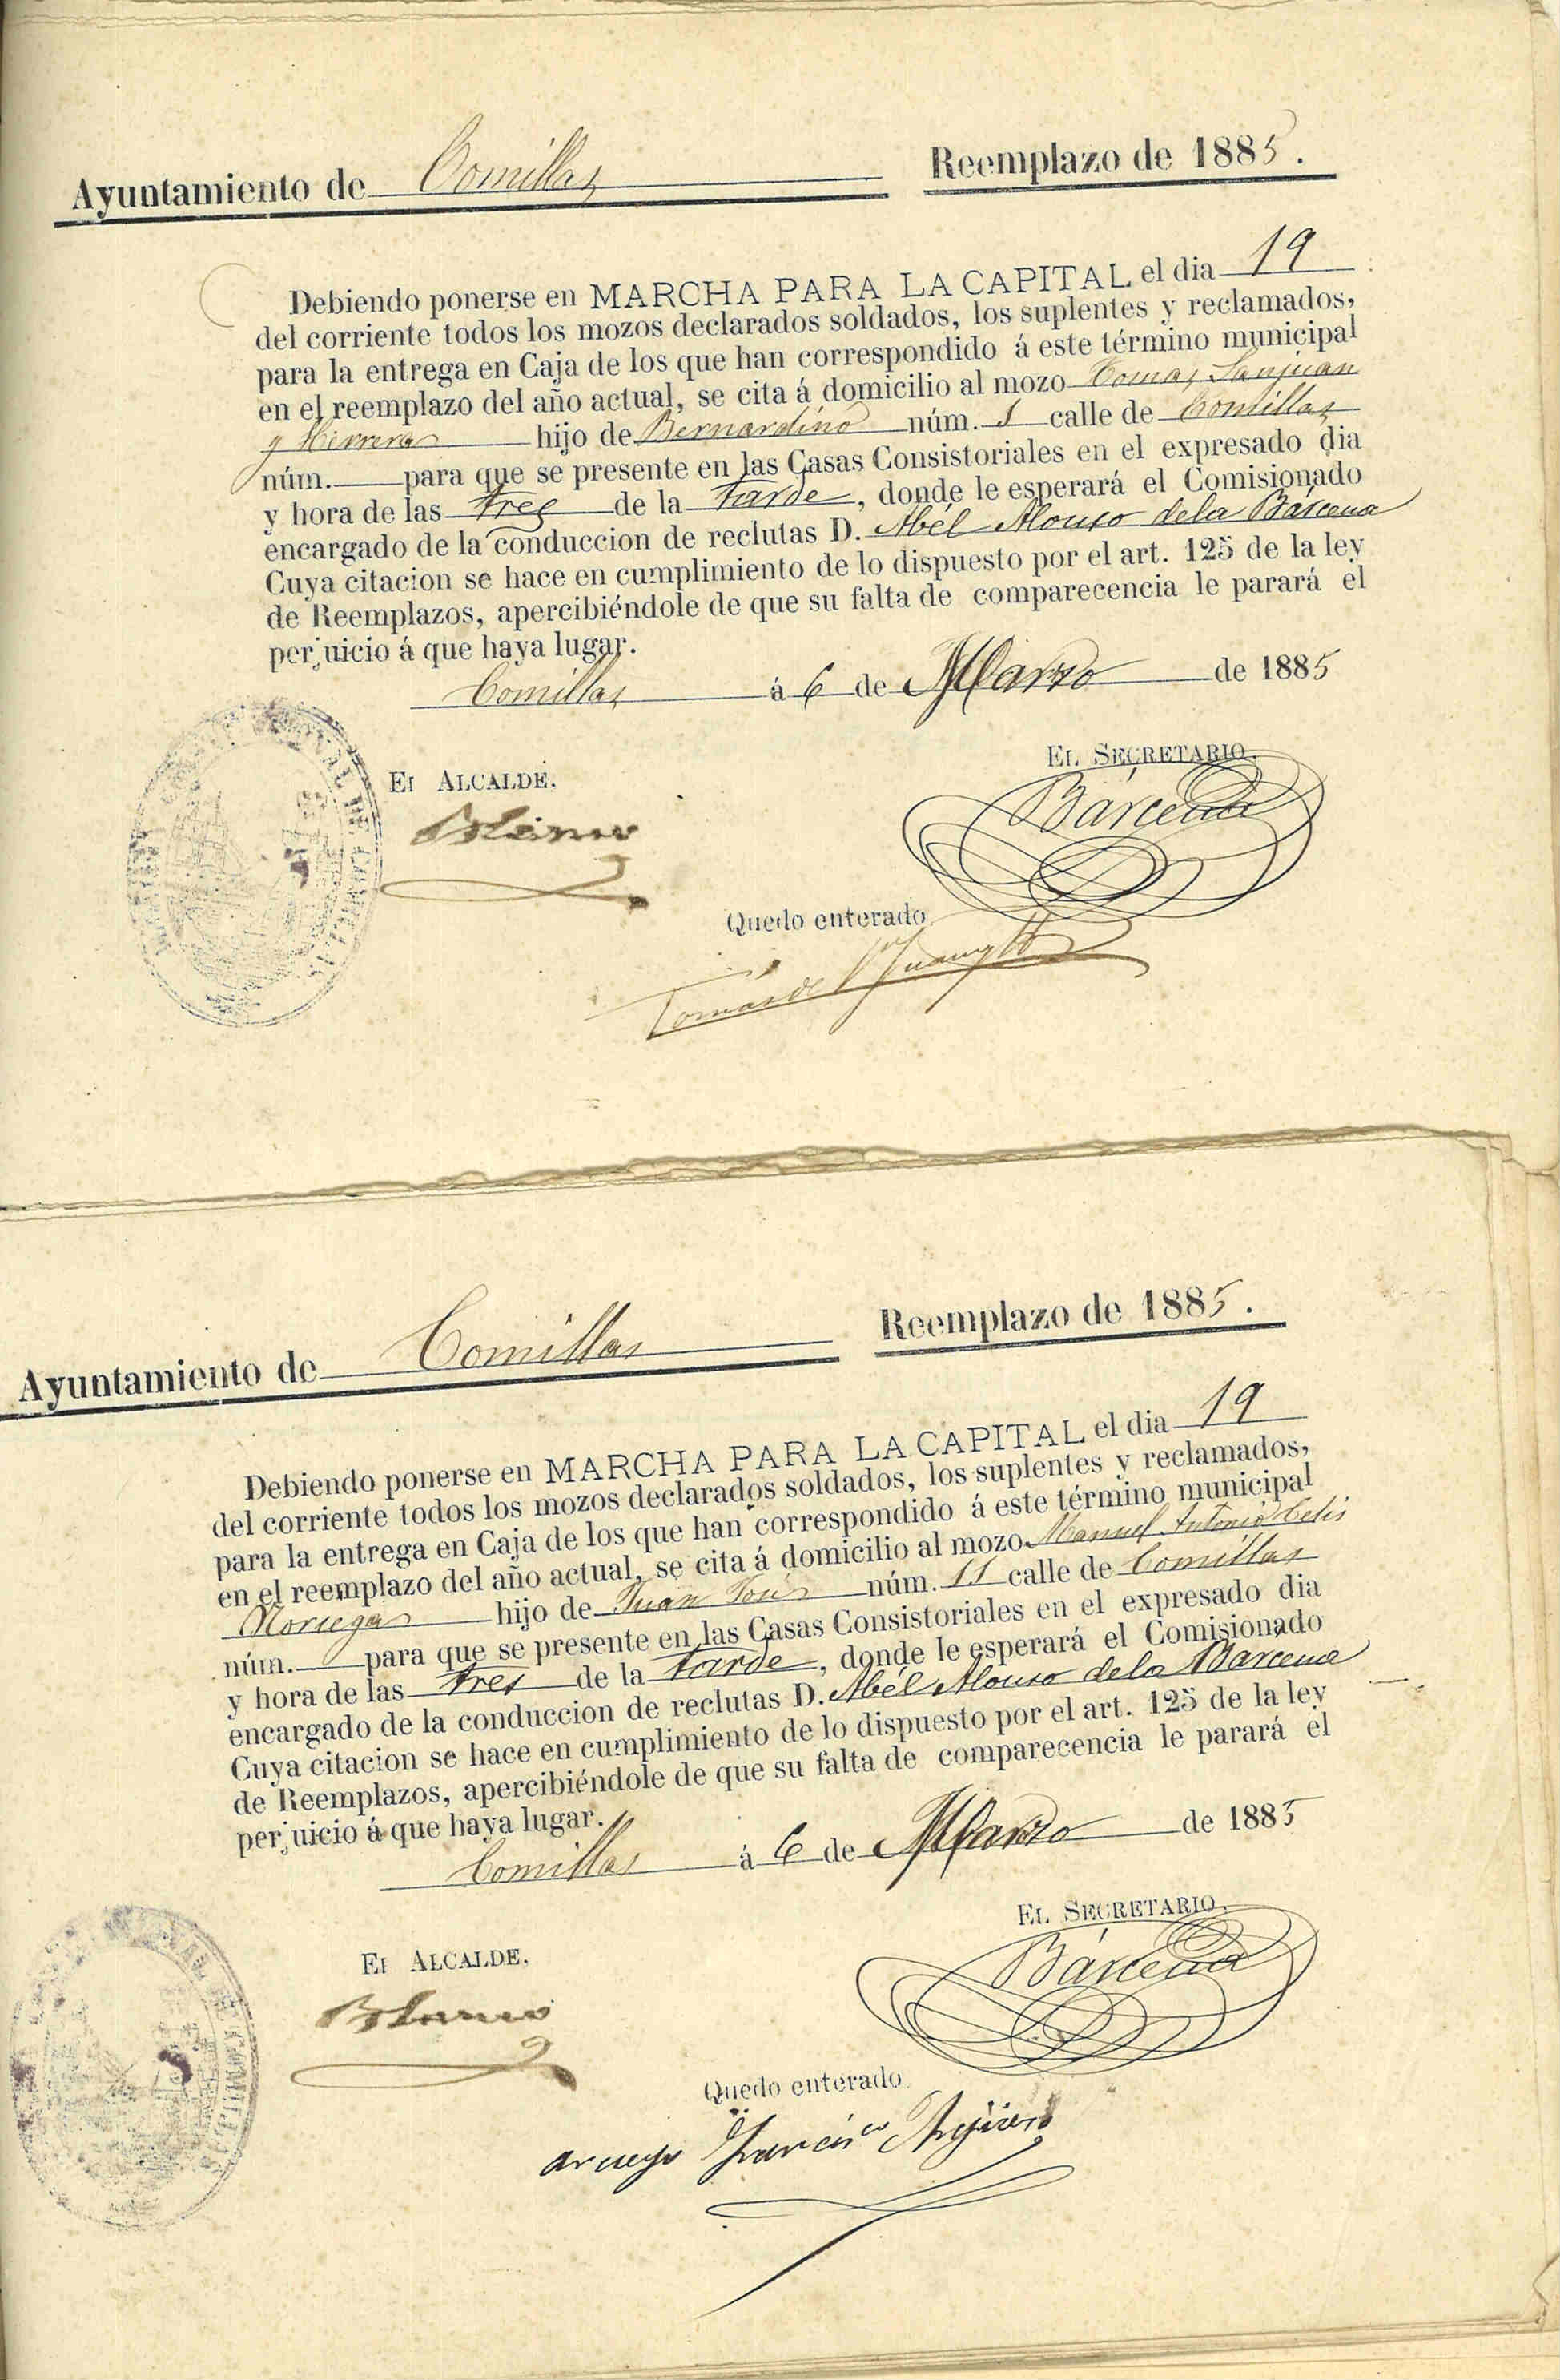 Ayuntamiento de Comillas Reemplazo de 1885.
Debiendo ponerse en MARCHA PARA LA CAPITAL el dia 19
del corriente todos los mozos declarados soldados, los suplentes y reclamados,
para la entrega en Caja de los que han correspondido á este término municipal
en el reemplazo del año actual, se cita á domicilio al mozo Tomas Sanjuan
y Herrera hijo de Bernardino núm. 1 calle de Comillas
núm. para que se presente en las Casas Consistoriales en el expresado dia
y hora de las tres de la tarde, donde le esperará el Comisionado
encargado de la conduccion de reclutas D. Abél Alonso de la Bárcena
Cuya citacion se hace en cumplimiento de lo dispuesto por el art. 125 de la ley
de Reemplazos, apercibiéndole de que su falta de comparecencia le parará el
perjuicio á que haya lugar.
Comillas á 6 de Marzo de 1885
EL SECRETARIO.
El ALCALDE.
Bárcena
Blanco
Quedo enterado
Ayuntamiento de Comillas Reemplazo de 1885.
Debiendo ponerse en MARCHA PARA LA CAPITAL el dia 19
del corriente todos los mozos declarados soldados, los suplentes y reclamados,
para la entrega en Caja de los que han correspondido á este término municipal
en el reemplazo del año actual, se cita á domicilio al mozo Manuel Antonio Celis
Noriega hijo de Juan José núm. 11 calle de Comillas
núm. para que se presente en las Casas Consistoriales en el expresado dia
y hora de las tres de la tarde, donde le esperará el Comisionado
encargado de la conduccion de reclutas D. Abél Alonso de la Bárcena
Cuya citacion se hace en cumplimiento de lo dispuesto por el art. 125 de la ley
de Reemplazos, apercibiéndole de que su falta de comparecencia le parará el
perjuicio á que haya lugar.
Comillas á 6 de Marzo de 1885
EL SECRETARIO.
El ALCALDE.
Bárcena
Blanco
Quedo enterado
a ruego Francisco Agüero